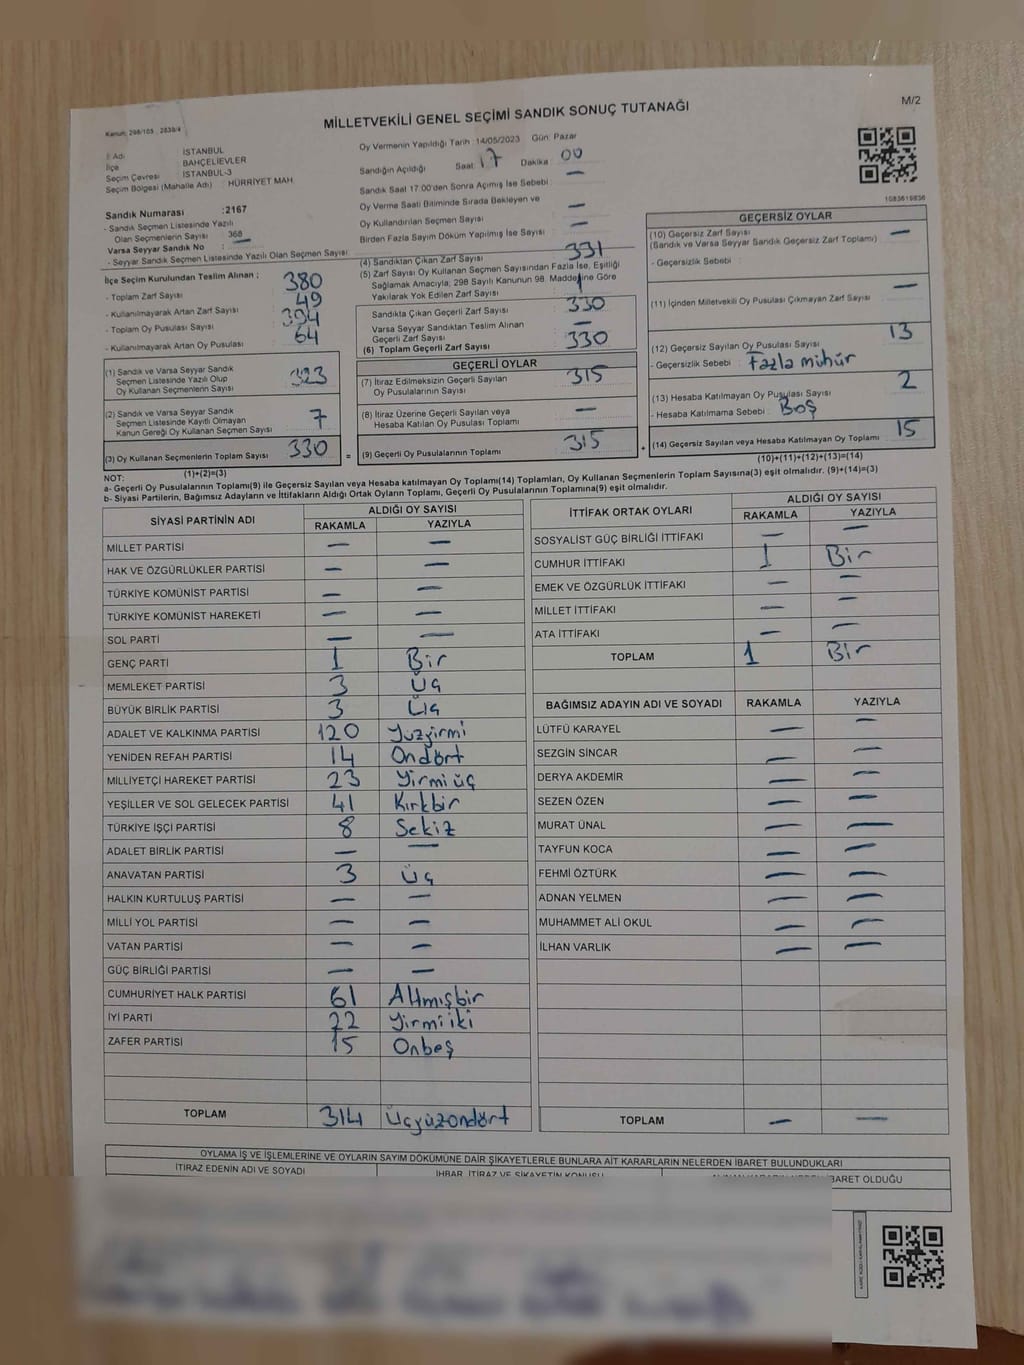 M/2
MİLLETVEKİLİ GENEL SEÇİMİ SANDIK SONUÇ TUTANAĞI
Kanun: 298/105 , 2839/4
İl Adı : İSTANBUL
İlçe : BAHÇELİEVLER
Seçim Çevresi : İSTANBUL-3
Seçim Bölgesi (Mahalle Adı) : HÜRRİYET MAH.
Sandık Numarası :2167
- Sandık Seçmen Listesinde Yazılı
Olan Seçmenlerin Sayısı : 368
Varsa Seyyar Sandık No : —
- Seyyar Sandık Seçmen Listesinde Yazılı Olan Seçmen Sayısı:
İlçe Seçim Kurulundan Teslim Alınan ;
- Toplam Zarf Sayısı : 380
- Kullanılmayarak Artan Zarf Sayısı : 49
- Toplam Oy Pusulası Sayısı : 394
- Kullanılmayarak Artan Oy Pusulası : 64
(1) Sandık ve Varsa Seyyar Sandık
Seçmen Listesinde Yazılı Olup
Oy Kullanan Seçmenlerin Sayısı : 323
(2) Sandık ve Varsa Seyyar Sandık
Seçmen Listesinde Kayıtlı Olmayan
Kanun Gereği Oy Kullanan Seçmen Sayısı : 7
(3) Oy Kullanan Seçmenlerin Toplam Sayısı : 330
(1)+(2)=(3)
Oy Vermenin Yapıldığı Tarih : 14/05/2023 Gün: Pazar
Sandığın Açıldığı Saat: 17 Dakika : 00
Sandık Saat 17:00'den Sonra Açımış İse Sebebi : —
Oy Verme Saati Bitiminde Sırada Bekleyen ve
Oy Kullandırılan Seçmen Sayısı : —
Birden Fazla Sayım Döküm Yapılmış İse Sayısı : —
(4) Sandıktan Çıkan Zarf Sayısı : 331
(5) Zarf Sayısı Oy Kullanan Seçmen Sayısından Fazla İse, Eşitliği
Sağlamak Amacıyla, 298 Sayılı Kanunun 98. Maddesine Göre
Yakılarak Yok Edilen Zarf Sayısı : 1
Sandıkta Çıkan Geçerli Zarf Sayısı : 330
Varsa Seyyar Sandıktan Teslim Alınan
Geçerli Zarf Sayısı : —
(6) Toplam Geçerli Zarf Sayısı : 330
GEÇERLİ OYLAR
(7) İtiraz Edilmeksizin Geçerli Sayılan
Oy Pusulalarının Sayısı : 315
(8) İtiraz Üzerine Geçerli Sayılan veya
Hesaba Katılan Oy Pusulası Toplamı : —
= (9) Geçerli Oy Pusulalarının Toplamı : 315
1083619836
GEÇERSİZ OYLAR
(10) Geçersiz Zarf Sayısı
(Sandık ve Varsa Seyyar Sandık Geçersiz Zarf Toplamı) : —
- Geçersizlik Sebebi :
(11) İçinden Milletvekili Oy Pusulası Çıkmayan Zarf Sayısı : —
(12) Geçersiz Sayılan Oy Pusulası Sayısı : 13
- Geçersizlik Sebebi : Fazla mühür
(13) Hesaba Katılmayan Oy Pusulası Sayısı : 2
- Hesaba Katılmama Sebebi : Boş
+ (14) Geçersiz Sayılan veya Hesaba Katılmayan Oy Toplamı : 15
(10)+(11)+(12)+(13)=(14)
NOT:
a- Geçerli Oy Pusulalarının Toplamı(9) ile Geçersiz Sayılan veya Hesaba katılmayan Oy Toplamı(14) Toplamları, Oy Kullanan Seçmenlerin Toplam Sayısına(3) eşit olmalıdır. (9)+(14)=(3)
b- Siyasi Partilerin, Bağımsız Adayların ve İttifakların Aldığı Ortak Oyların Toplamı, Geçerli Oy Pusulalarının Toplamına(9) eşit olmalıdır.
SİYASİ PARTİNİN ADI ALDIĞI OY SAYISI
RAKAMLA YAZIYLA
MİLLET PARTİSİ — —
HAK VE ÖZGÜRLÜKLER PARTİSİ — —
TÜRKİYE KOMÜNİST PARTİSİ — —
TÜRKİYE KOMÜNİST HAREKETİ — —
SOL PARTİ — —
GENÇ PARTİ 1 Bir
MEMLEKET PARTİSİ 3 Üç
BÜYÜK BİRLİK PARTİSİ 3 Üç
ADALET VE KALKINMA PARTİSİ 120 Yüzyirmi
YENİDEN REFAH PARTİSİ 14 Ondört
MİLLİYETÇİ HAREKET PARTİSİ 23 Yirmi üç
YEŞİLLER VE SOL GELECEK PARTİSİ 41 Kırkbir
TÜRKİYE İŞÇİ PARTİSİ 8 Sekiz
ADALET BİRLİK PARTİSİ — —
ANAVATAN PARTİSİ 3 Üç
HALKIN KURTULUŞ PARTİSİ — —
MİLLİ YOL PARTİSİ — —
VATAN PARTİSİ — —
GÜÇ BİRLİĞİ PARTİSİ — —
CUMHURİYET HALK PARTİSİ 61 Altmışbir
İYİ PARTİ 22 Yirmi iki
ZAFER PARTİSİ 15 Onbeş
TOPLAM 314 Üçyüzondört
İTTİFAK ORTAK OYLARI ALDIĞI OY SAYISI
RAKAMLA YAZIYLA
SOSYALİST GÜÇ BİRLİĞİ İTTİFAKI — —
CUMHUR İTTİFAKI 1 Bir
EMEK VE ÖZGÜRLÜK İTTİFAKI — —
MİLLET İTTİFAKI — —
ATA İTTİFAKI — —
TOPLAM 1 Bir
BAĞIMSIZ ADAYIN ADI VE SOYADI RAKAMLA YAZIYLA
LÜTFÜ KARAYEL — —
SEZGİN SİNCAR — —
DERYA AKDEMİR — —
SEZEN ÖZEN — —
MURAT ÜNAL — —
TAYFUN KOCA — —
FEHMİ ÖZTÜRK — —
ADNAN YELMEN — —
MUHAMMET ALİ OKUL — —
İLHAN VARLIK — —
TOPLAM — —
OYLAMA İŞ VE İŞLEMLERİNE VE OYLARIN SAYIM DÖKÜMÜNE DAİR ŞİKAYETLERLE BUNLARA AİT KARARLARIN NELERDEN İBARET BULUNDUKLARI
İTİRAZ EDENİN ADI VE SOYADI İHBAR, İTİRAZ VE ŞİKAYETİN KONUSU İBARET OLDUĞU